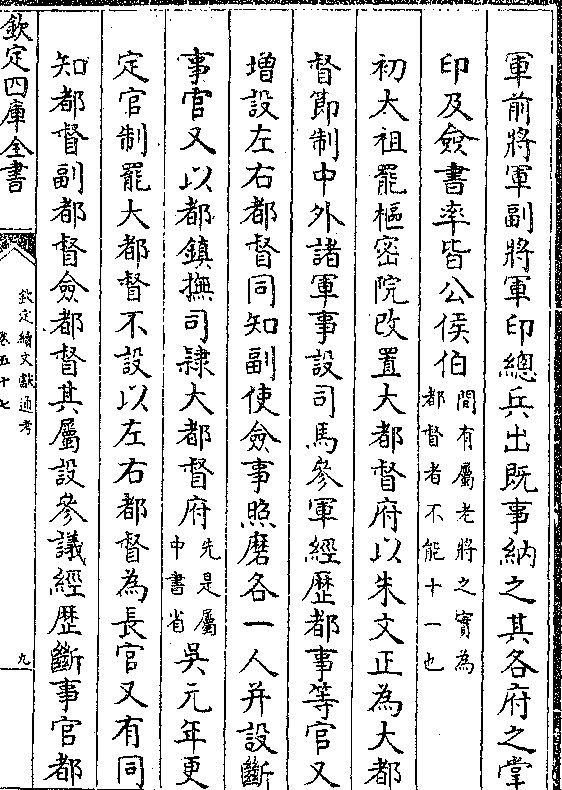 軍前將軍副將軍印總兵出既事納之其各府之掌
印及僉書率皆公侯伯間有屬老將之實為都督者不能十一也
初太祖罷樞密院改置大都督府以朱文正為大都
督節制中外諸軍事設司馬參軍經歷都事等官又
增設左右都督同知副使僉事照磨各一人并設斷
事官又以都鎮撫司隸大都督府先是屬中書省吳元年更
定官制罷大都督不設以左右都督為長官又有同
知都督副都督僉都督其屬設參議經歷斷事官都
欽定四庫全書
欽定續文獻通考
卷五十七
九